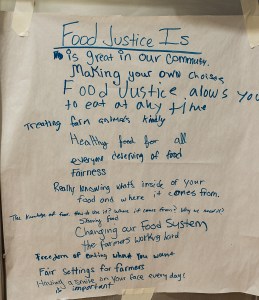 Food Justice Is
is great in our community.
Making your own choices
Food Justice alows you
to eat at any time
Treating farm animals kindly
Healthy food for all
everyone deserving of food
fairness
Really knowing whats inside of your
food and where it comes from.
The knowledge of food. How do use it? Where it comes from? Why we need it?
Sharing food
Changing our Food System
the farmers working hard
Freedom of eating what you want
Fair Settings for farmers
Having a smile on your face every day!
is important